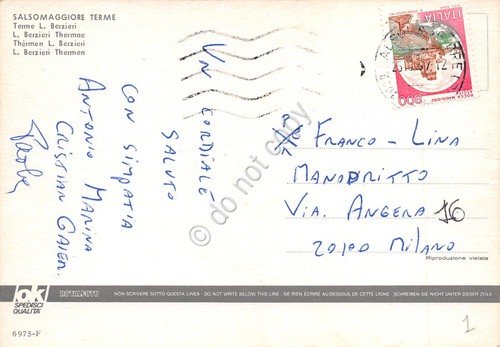 SALSOMAGGIORE TERME
Terme L. Berzieri
L. Berzieri Thermae
Thérmen L. Berzieri
L. Berzieri Thermen
UN CORDIALE
SALUTO
CON SIMPATIA
ANTONIO MARINA
CRISTIAN
ITALIA
500
FRANCO - LINA
MANDRITTO
VIA ANGERA 16
20100 MILANO
Riproduzione vietata
do not copy
ok
SPEDISCI
QUALITA'
ROTALFOTO
NON SCRIVERE SOTTO QUESTA LINEA - DO NOT WRITE BELOW THIS LINE - NE RIEN ECRIRE AU-DESSOUS DE CETTE LIGNE - SCHREIBEN SIE NICHT UNTER DIESER ZEILE
6975-F
1